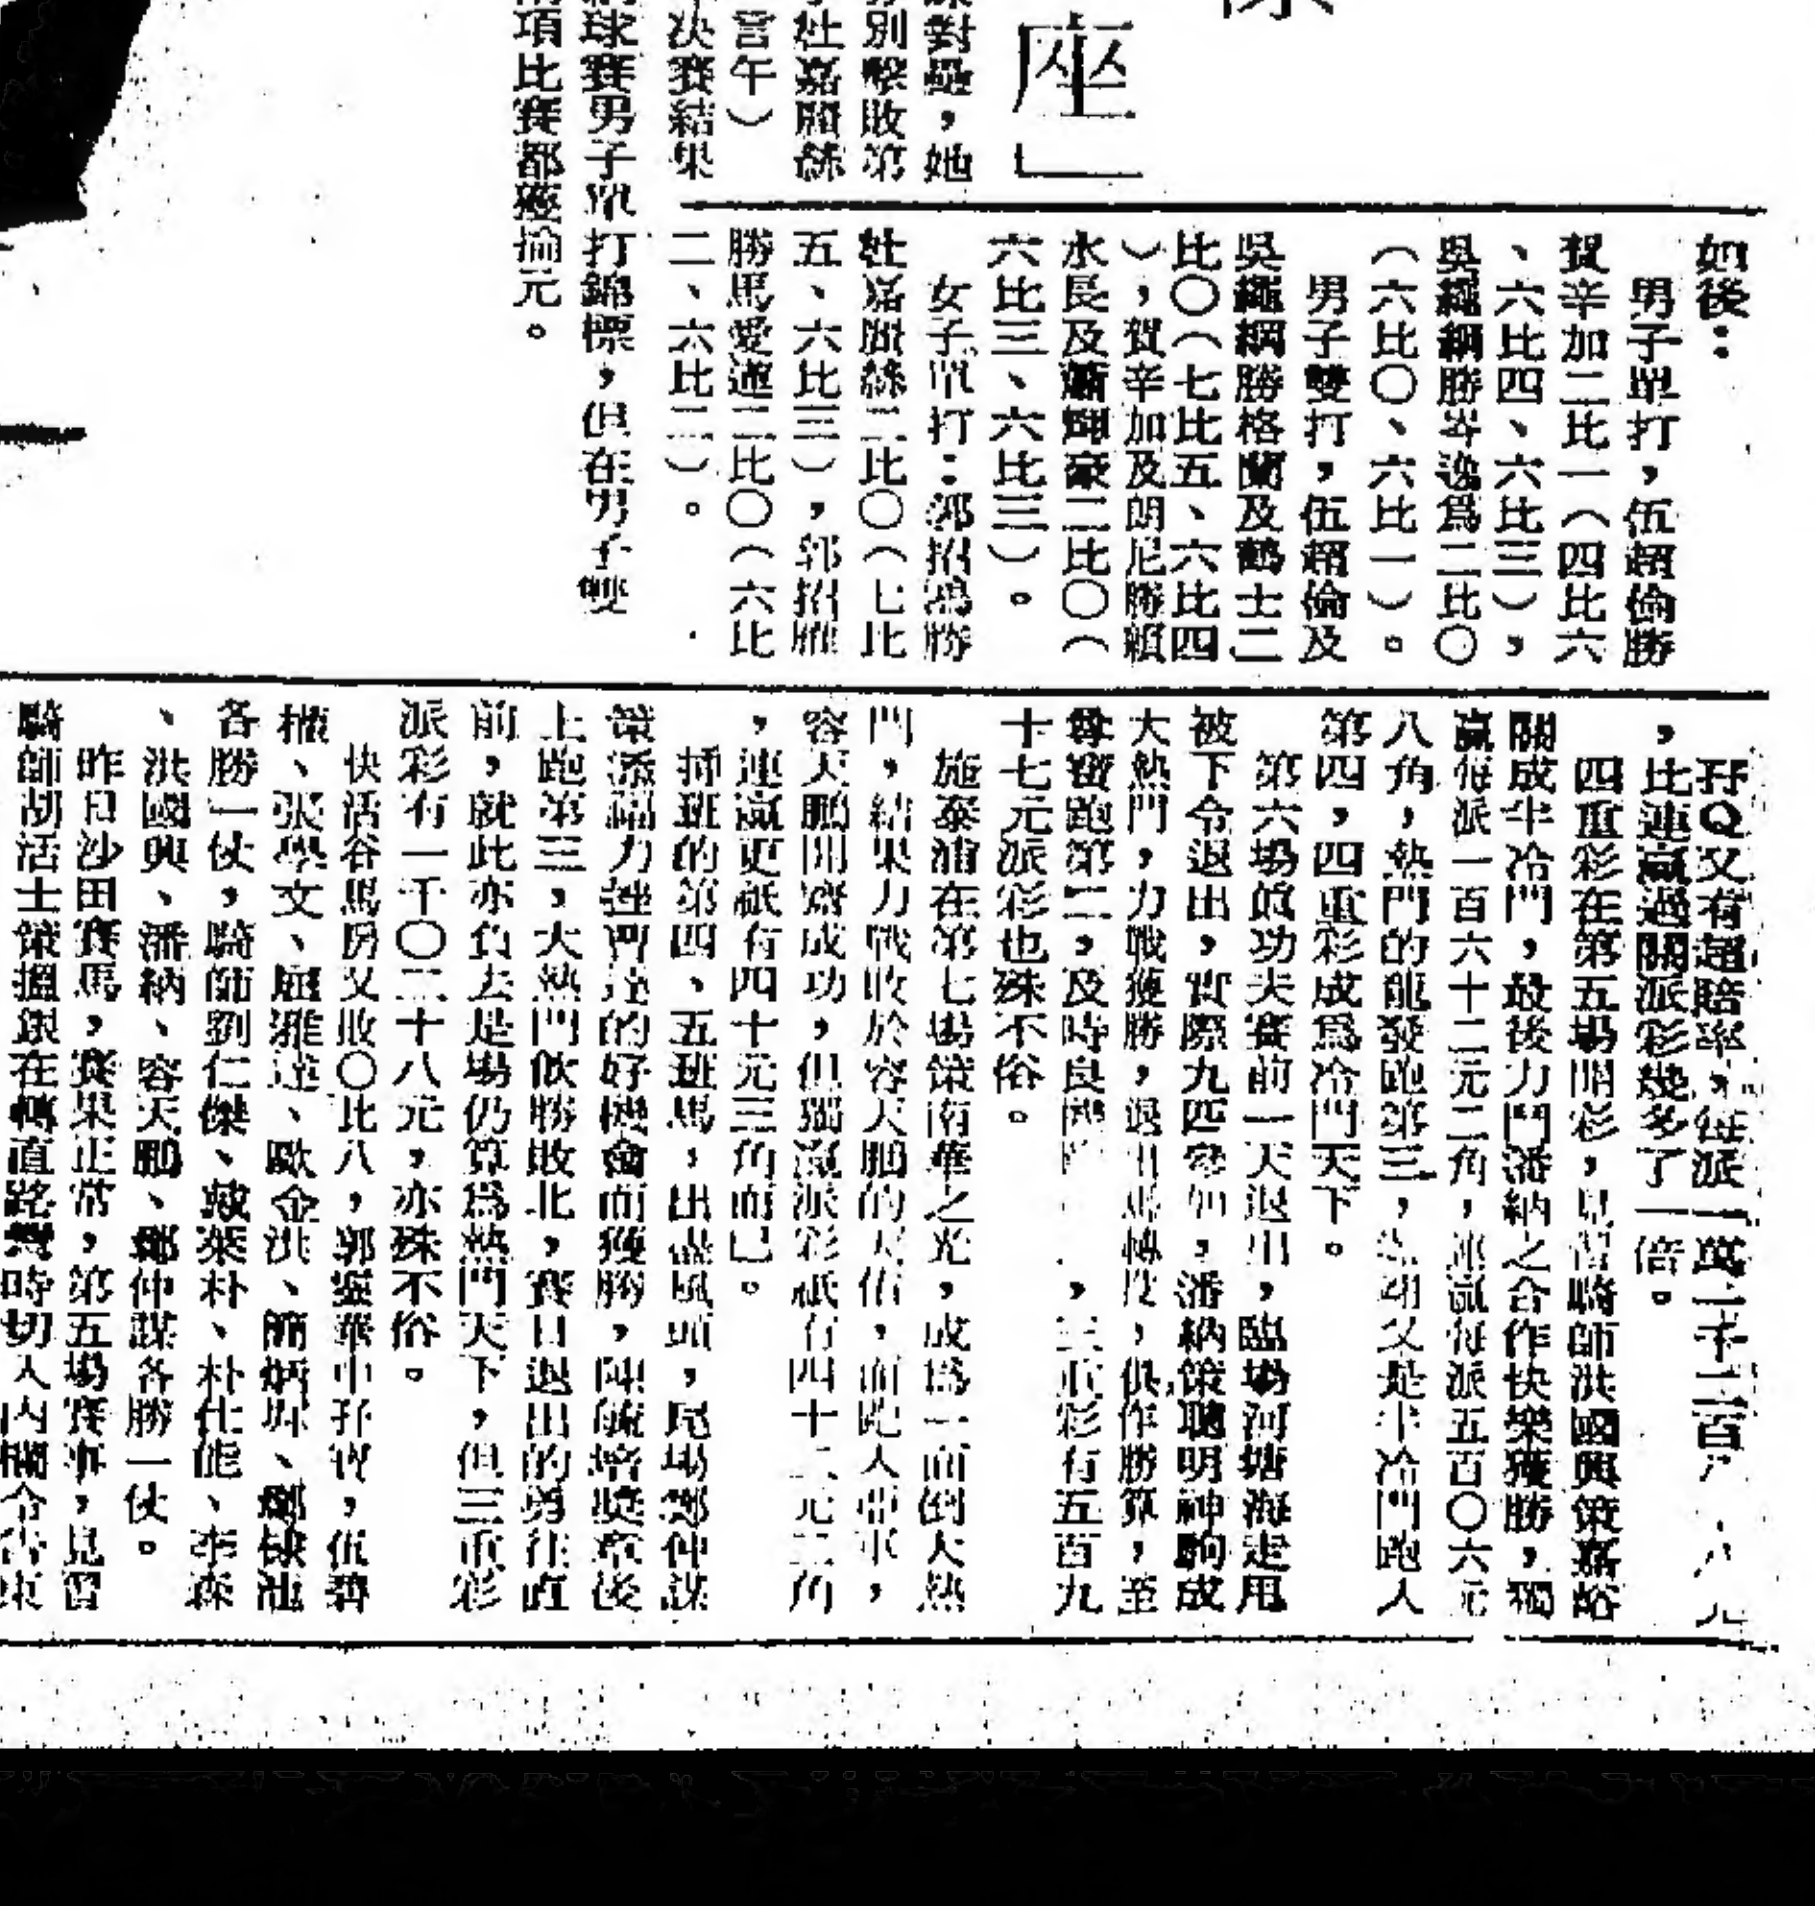 座」
課對壘，她
別擊敗第
杜嘉
宮午）
决賽結果
球賽男子單打錦標，但在男子雙
項比賽都獲揄元。
如後：
男子單打，伍超倫勝
賀辛加二比一（四比六
、六比四、六比三），
吳繩綱勝岑逸爲二比〇
（六比〇、六比一）。
男子雙打，伍超倫及
吳繩綱勝格蘭及鶴士二
比〇（七比五、六比四
），賀辛加及朗尼勝賴
水長及蕭輝豪二比〇（
六比三、六比三）。
女子單打：郭招鴻勝
杜嘉 二比〇（七比
五、六比三），郭招雁
勝馬愛蓮二比〇（六比
二、六比二）。
孖Q又有超賠率，每派一萬二千二百
，比連贏過關派彩幾多了一倍。
四重彩在第五場開彩，見習騎師洪國興策嘉裕
關成半冷門，最後力鬥潘納之合作快樂獲勝，獨
贏每派一百六十二元二角，連贏每派五百〇六元
八角，熱門的龍發跑第三， 又是半冷門跑入
第四，四重彩成爲冷門天下。
第六場眞功夫賽前一天退出，臨場河塘海走甩
被下令退出，實際九匹參加，潘納策聰明神駒成
大熱門，力戰獲勝，退出馬轉投，俱作勝算，至
尊寶跑第二，及時良 ，三重彩有五百九
十七元派彩也殊不俗。
施泰浦在第七場策南華之光，成爲一面倒大熱
門，結果力戰敗於容天鵬的 ，而跑入亞軍，
容天鵬開齋成功，但獨贏派彩祇有四十二元二角
，連贏更祇有四十元三角而已。
揷班的第四、五班馬，出盡風頭，尾場鄭仲謀
策添福力挫 的好機會而獲勝，陳毓培獎章後
上跑第三，大熱門飲勝敗北，賽日退出的勇往直
前，就此亦負去是場仍算爲熱門天下，但三重彩
派彩有一千〇二十八元，亦殊不俗。
快活谷馬房又敗〇比八，郭靈華中孖寶，伍碧
權、張學文、屈雅達、歐金洪、簡炳墀、鄭棣池
各勝一仗，騎師劉仁傑、戴萊朴、朴仕能、李森
、洪國興、潘納、容天鵬、鄭仲謀各勝一仗。
昨日沙田賽馬，賽果正常，第五場賽事，見習
騎師胡活士策搵銀在轉直路彎時切入內欄令